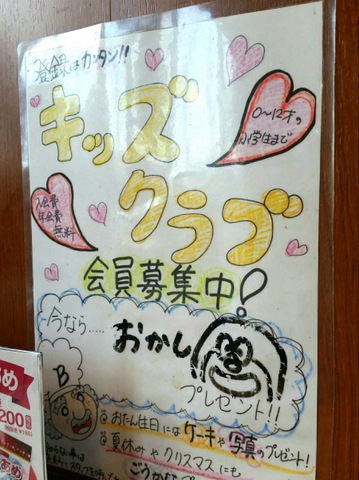 登録はカンタン!!
キッズ
クラブ
0〜12才の
小学生まで
入会費
年会費
無料
会員募集中!
今なら.....
おかし
プレゼント!!
B
おたん生日にはケーキや写真のプレゼント!
夏休みやクリスマスにも
ごうかな
め
200